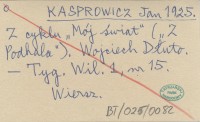 KASPROWICZ Jan 1925.
Z cyklu „Mój świat" („Z
Podhala"). Wojciech Dłuto.
— Tyg. Wil. 1, nr 15.
Wiersz.
BJ/026/0082